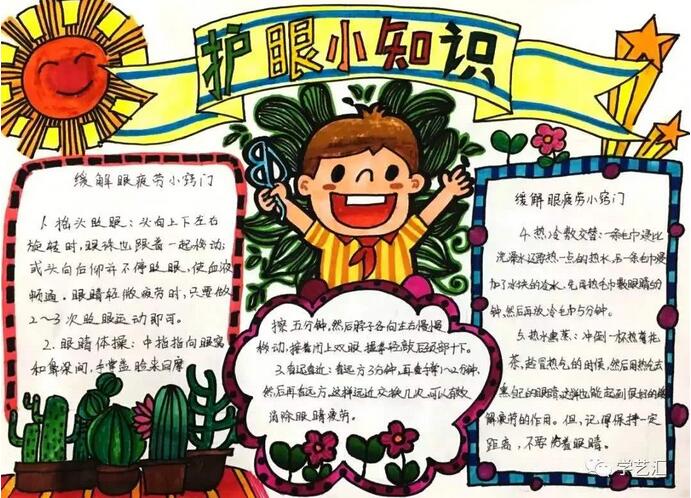 护眼小知识
缓解眼疲劳小窍门
1. 抬头眨眼:头向上下左右
旋转时,眼珠也跟着一起移动;
或头向后仰并不停眨眼,使血液
畅通。眼睛轻微疲劳时,只要做
2~3次眨眼运动即可。
2. 眼睛体操:中指指向眼窝
和鼻梁间,手掌盖脸来回摩
擦五分钟,然后脖子各向左右慢慢
移动,接着闭上双眼,握拳轻敲后颈部十下。
3. 看远看近:看远方3分钟,再看手掌1~2分钟,
然后再看远方。这样远近交换几次,可以有效
消除眼睛疲劳。
缓解眼疲劳小窍门
4. 热冷敷交替:一条毛巾浸比
洗澡水还要热一点的热水,另一条毛巾浸
加了冰块的冷水,先用热毛巾敷眼睛5分
钟,然后再放冷毛巾5分钟。
5. 热水熏蒸:冲倒一杯热菊花
茶,趁冒热气的时候,然后用热气去
熏自己的眼睛,这样也能起到很好的缓
解疲劳的作用。但,记得保持一定
距离,不要伤着眼睛。
学艺汇